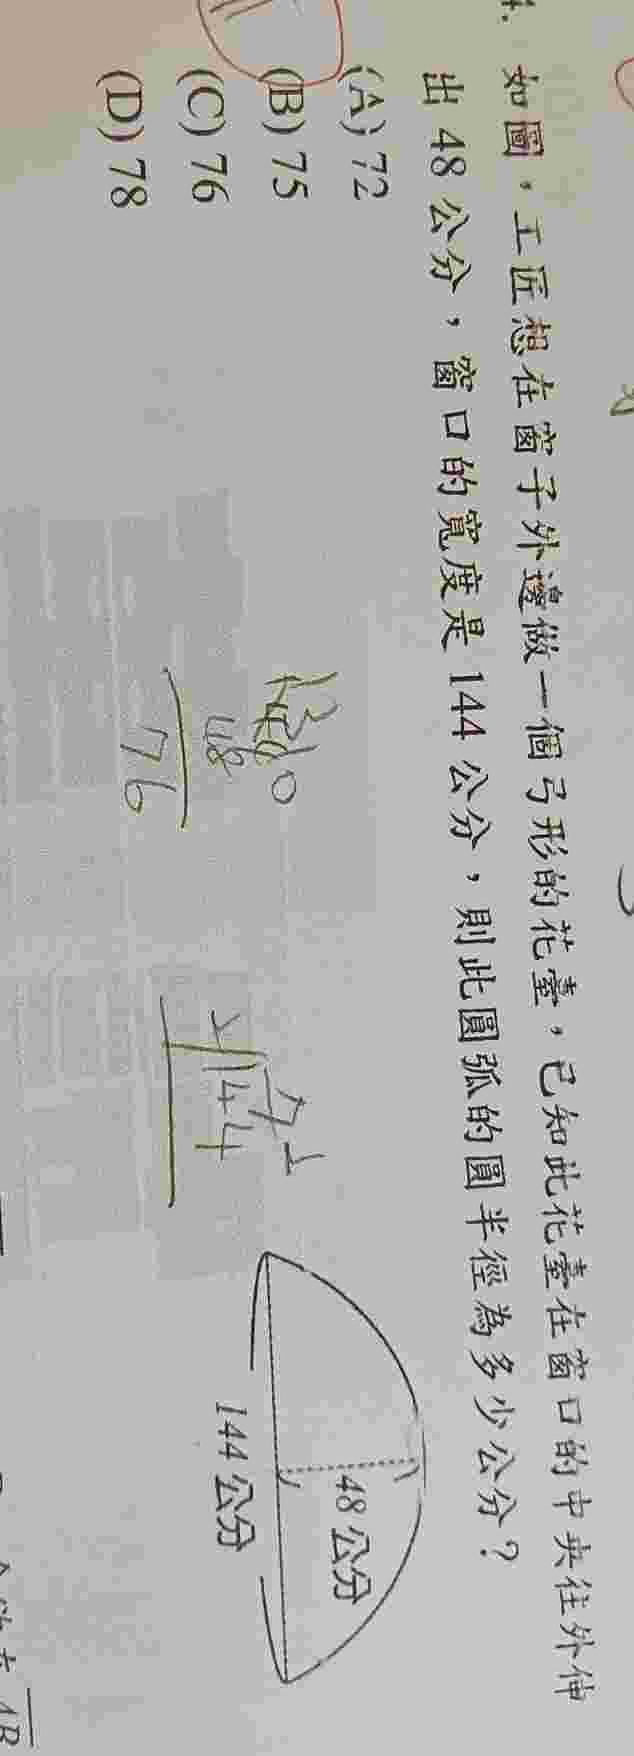 4. 如圖，工匠想在窗子外邊做一個弓形的花臺，已知此花臺在窗口的中央往外伸
出 48 公分，窗口的寬度是 144 公分，則此圓弧的圓半徑為多少公分？
(A) 72
(B) 75
(C) 76
(D) 78
48
76
144
72
48公分
144公分